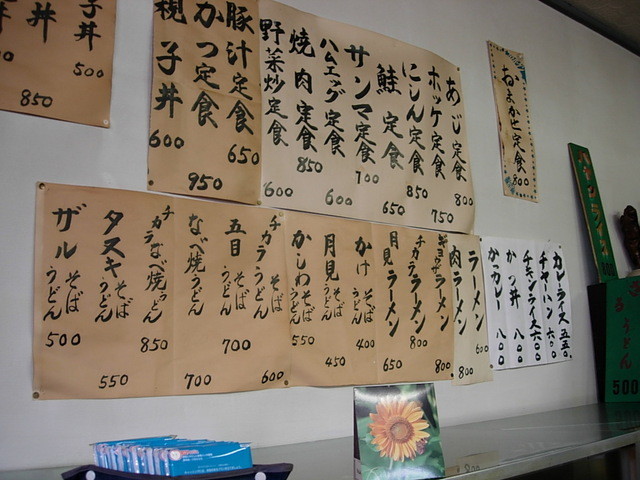 おまかせ定食 800
あじ定食 800
ホッケ定食 750
にしん定食 850
鮭定食 650
サンマ定食 700
ハムエッグ定食 600
焼肉定食 850
野菜炒定食 600
豚汁定食 650
かつ定食 950
親子丼 600
子丼 500
丼 850
カレーライス 五五〇
チャーハン 六〇〇
チキンライス 六〇〇
かつ丼 八〇〇
かつカレー 八〇〇
ラーメン 600
肉ラーメン 800
ギョウザラーメン
チカララーメン 800
月見ラーメン 650
かけ そば うどん 400
月見 そば うどん 450
かしわ そば うどん 550
チカラ そば うどん 600
五目 そば うどん 700
なべ焼うどん 700
チカラなべ焼うどん 850
タヌキ そば うどん 550
ザル そば うどん 500
うどん 500